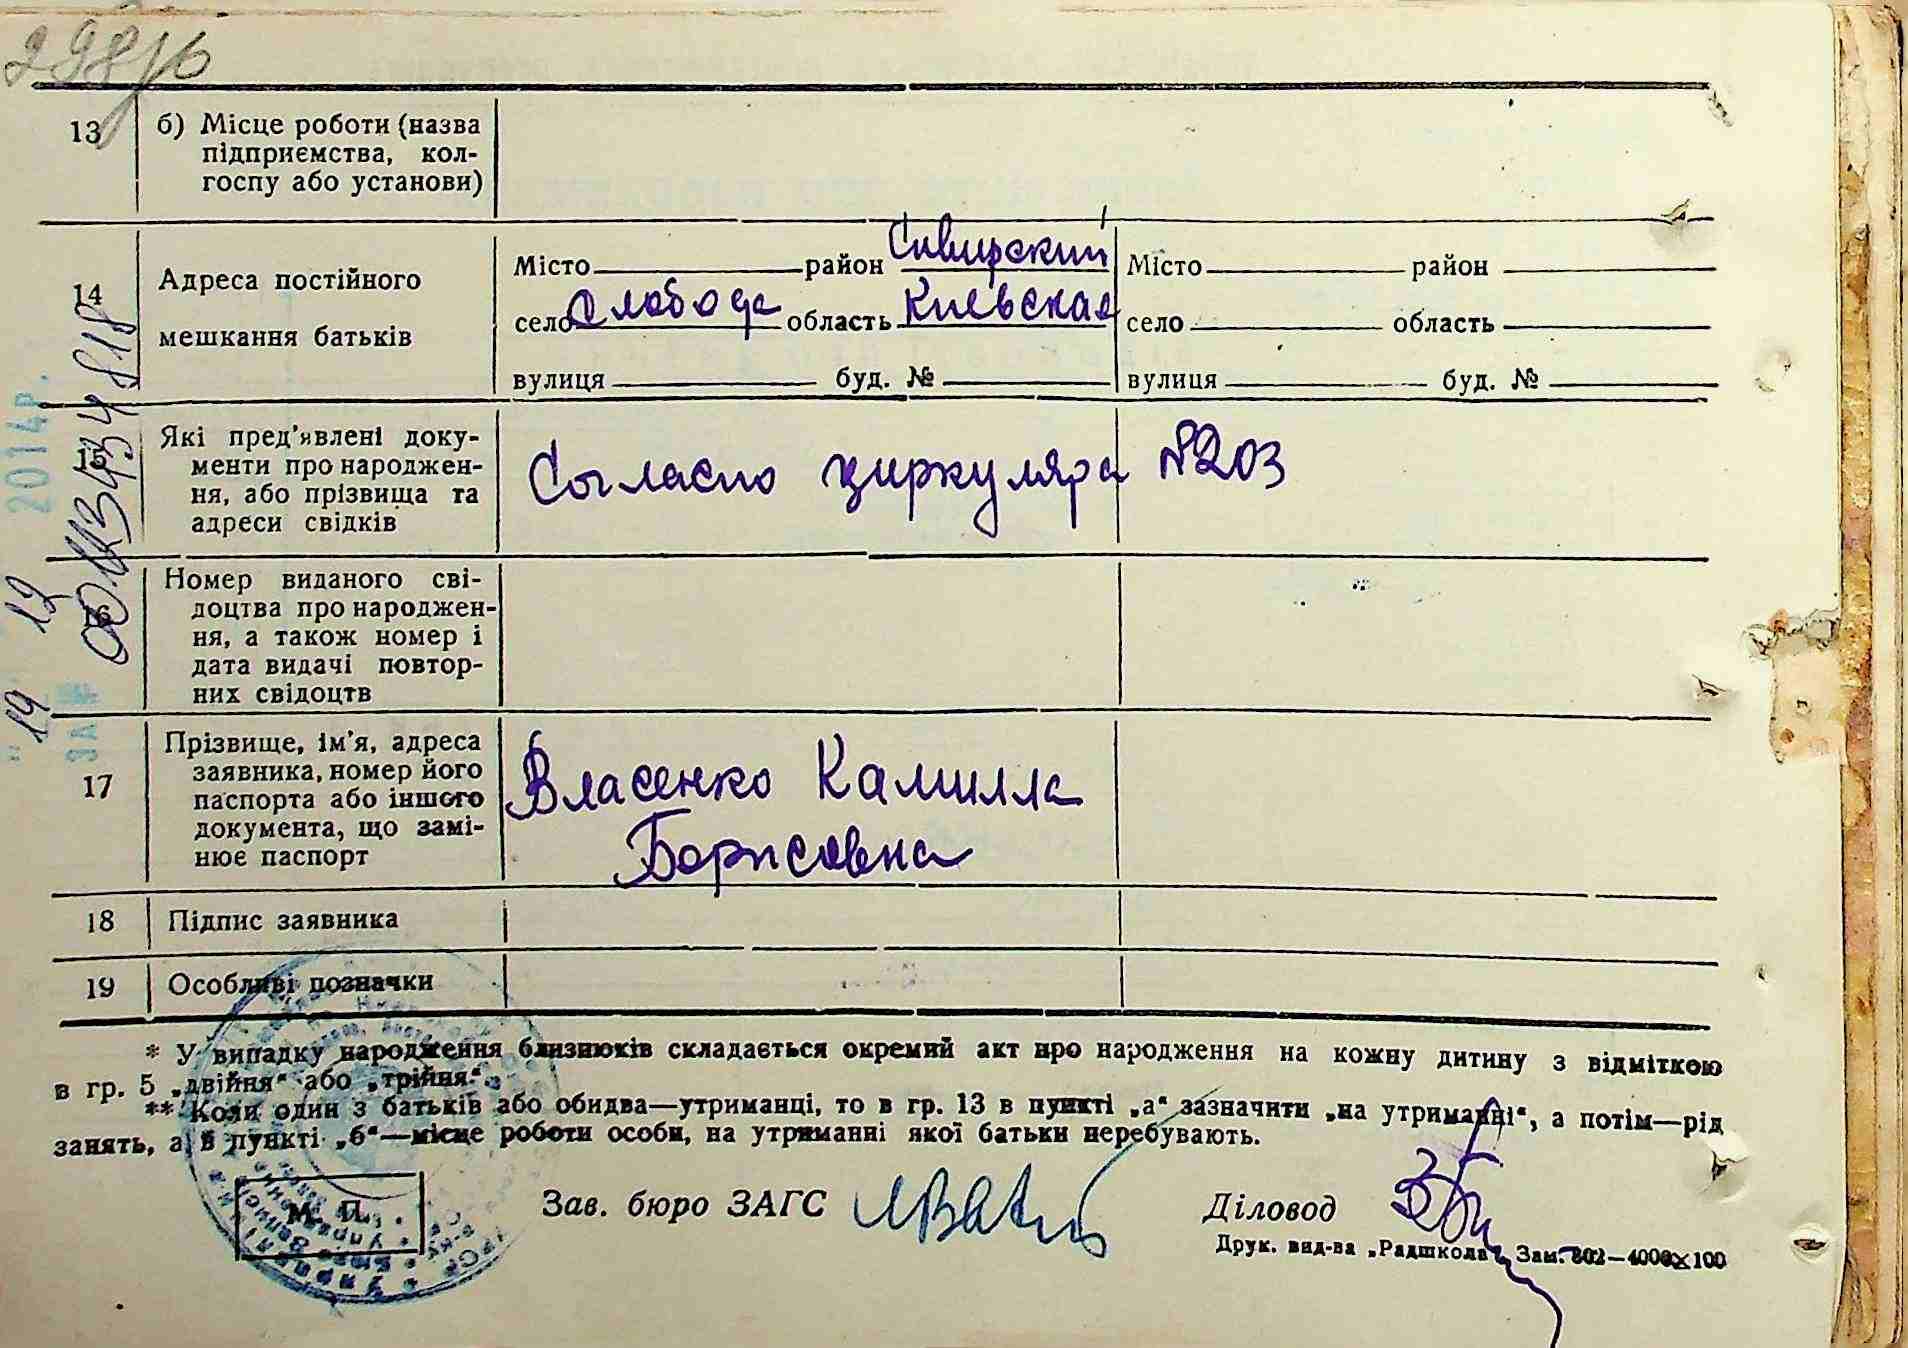 298/об
13 б) Місце роботи (назва
підприємства, кол-
госпу або установи)
14 Адреса постійного
мешкання батьків
Місто район Сквирский
село Слобода область Киевская
вулиця буд. №
Місто район
село область
вулиця буд. №
2014р.
15 Які пред'явлені доку-
менти про народжен-
ня, або прізвища та
адреси свідків
Согласно циркуляра №203
19 12
16 Номер виданого сві-
доцтва про народжен-
ня, а також номер і
дата видачі повтор-
них свідоцтв
17 Прізвище, ім'я, адреса
заявника, номер його
паспорта або іншого
документа, що замі-
нює паспорт
Власенко Камилла
Борисовна
18 Підпис заявника
19 Особливі позначки
* У випадку народження близнюків складається окремий акт про народження на кожну дитину з відміткою
в гр. 5 „двійня“ або „трійня“.
** Коли один з батьків або обидва—утриманці, то в гр. 13 в пункті „а“ зазначити „на утриманні“, а потім—рід
занять, а в пункті „б“—місце роботи особи, на утриманні якої батьки перебувають.
М. П.
Зав. бюро ЗАГС
Діловод
Друк. вид-ва „Радшкола“ Зам. 802—4000×100